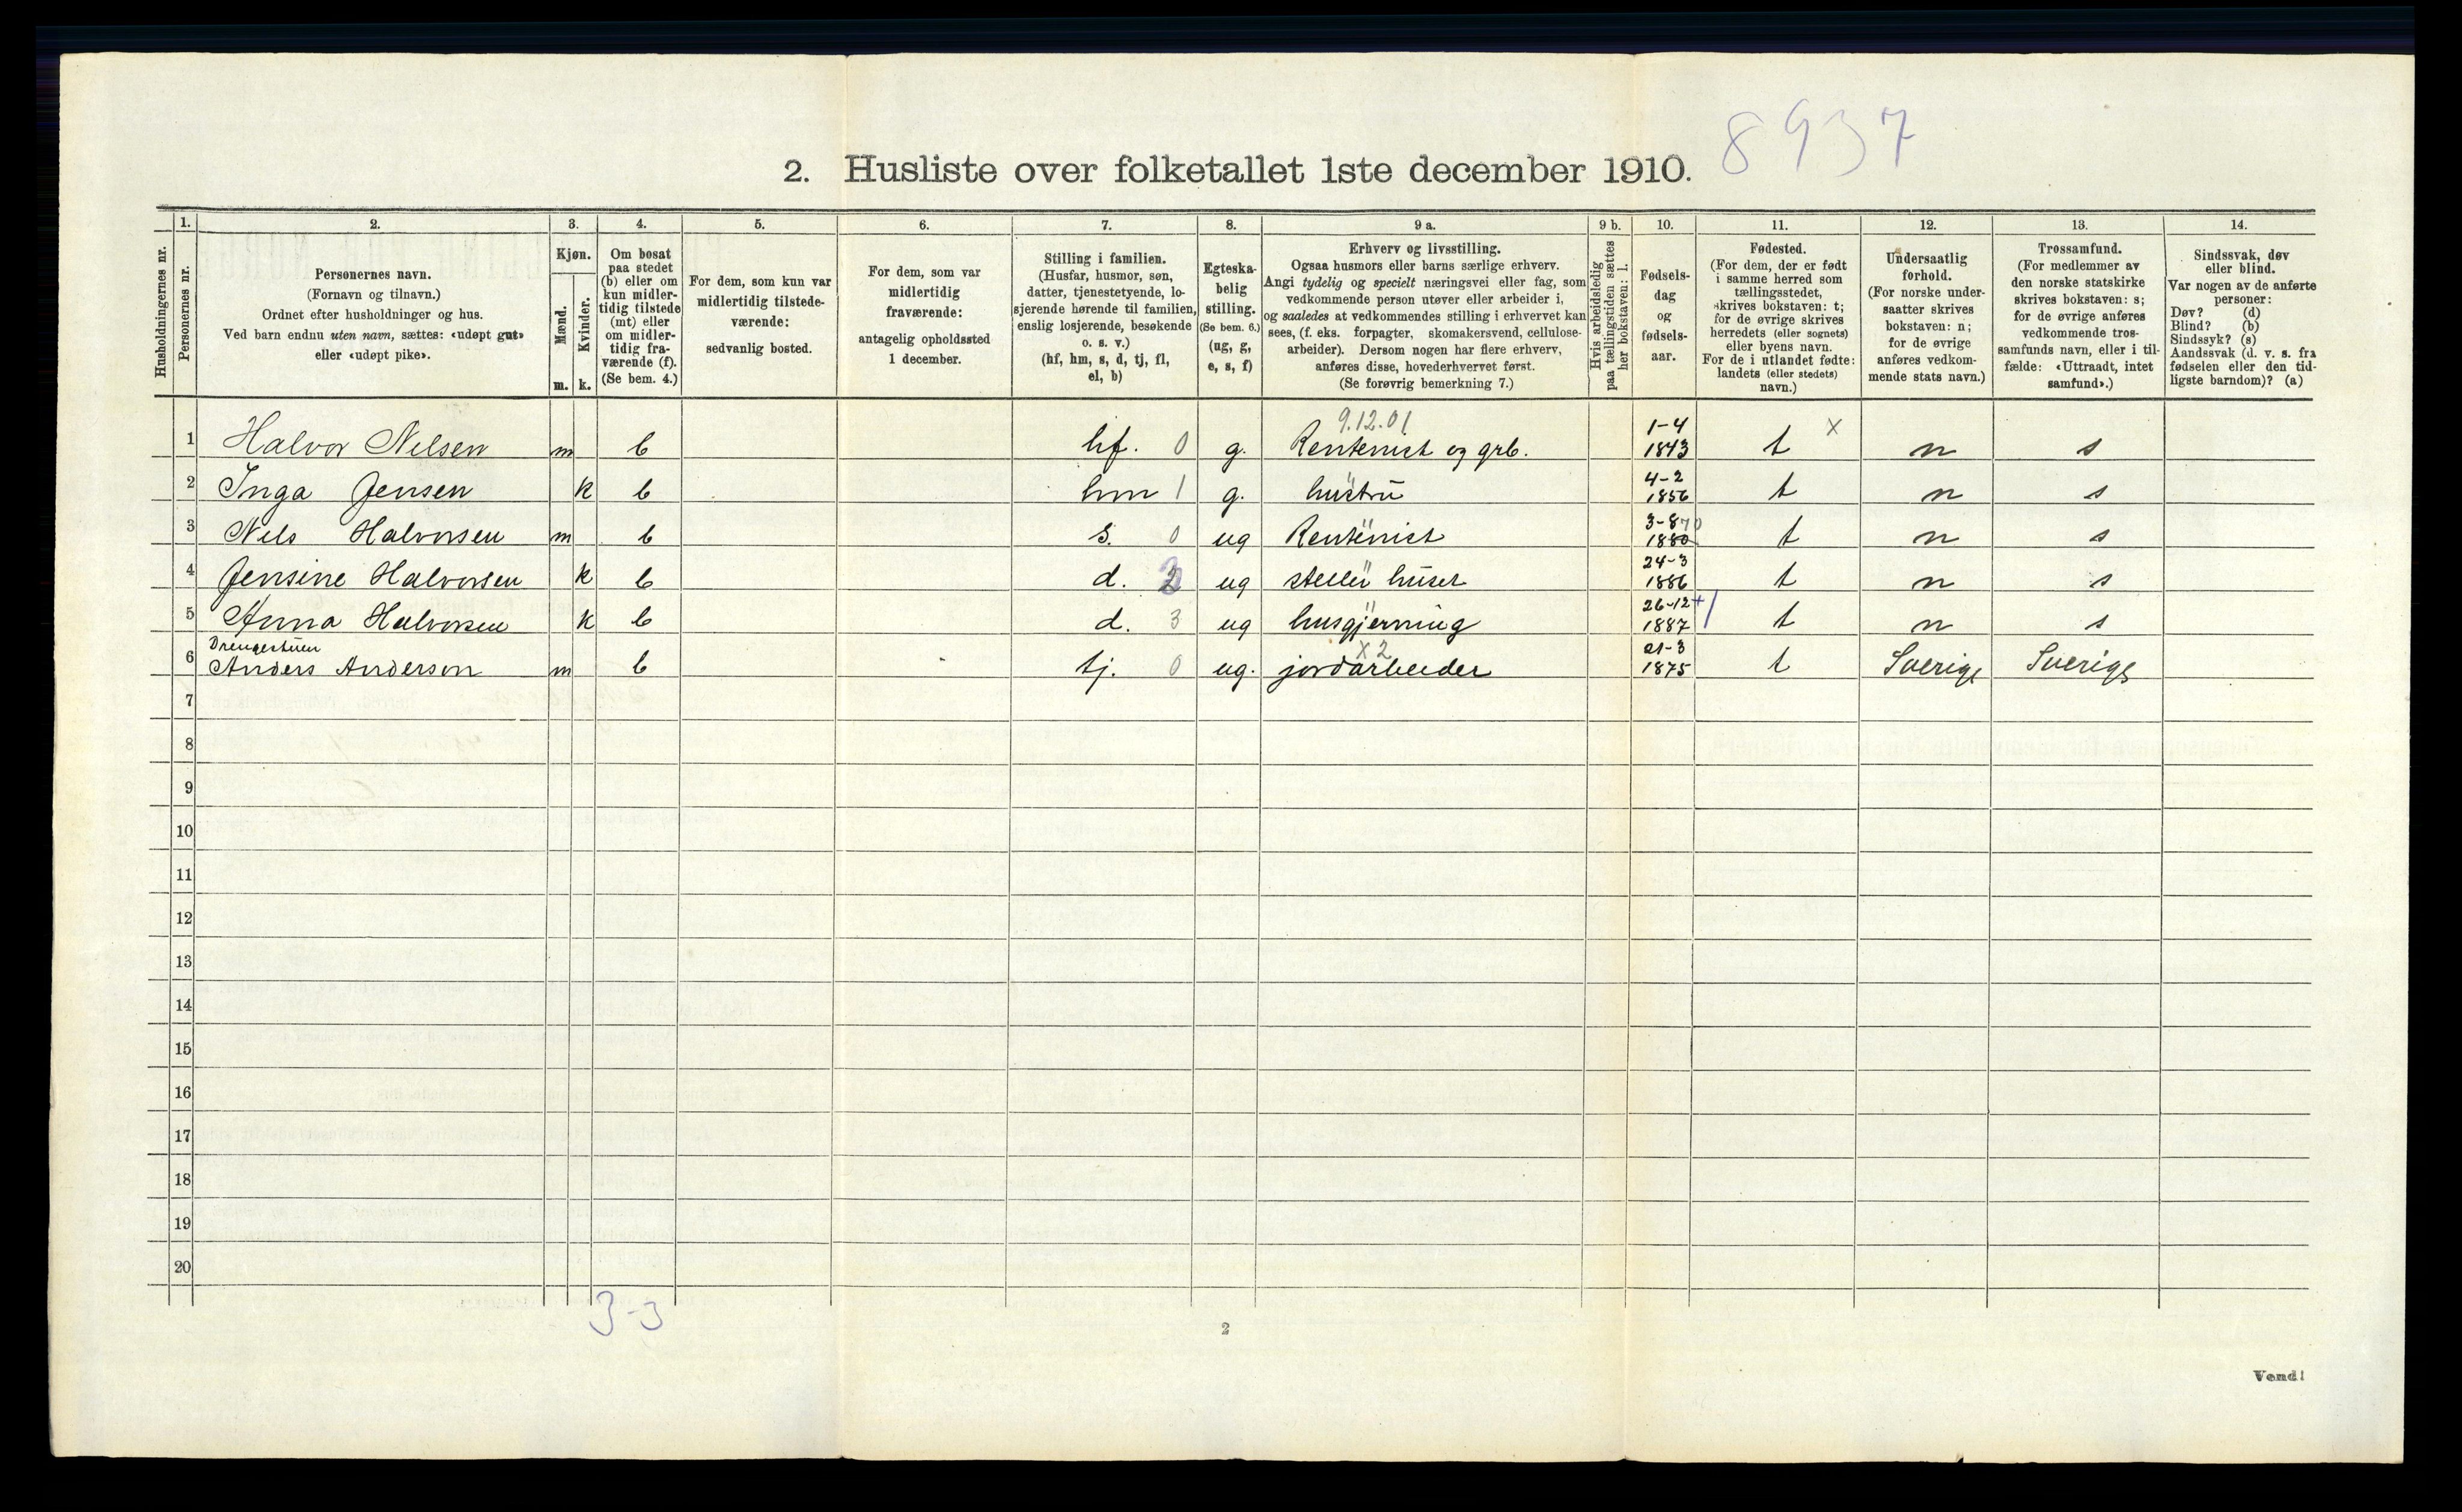 8937
2. Husliste over folketallet 1ste december 1910.
Husholdningernes nr.
1.
Personernes nr.
2.
Personernes navn.
(Fornavn og tilnavn.)
Ordnet efter husholdninger og hus.
Ved barn endnu uten navn, sættes: «udøpt gut»
eller «udøpt pike».
3.
Kjøn.
Mænd.
Kvinder.
m. k.
4.
Om bosat
paa stedet
(b) eller om
kun midler-
tidig tilstede
(mt) eller
om midler-
tidig fra-
værende (f).
(Se bem. 4.)
5.
For dem, som kun var
midlertidig tilstede-
værende:
sedvanlig bosted.
6.
For dem, som var
midlertidig
fraværende:
antagelig opholdssted
1 december.
7.
Stilling i familien.
(Husfar, husmor, søn,
datter, tjenestetyende, lo-
sjerende hørende til familien,
enslig losjerende, besøkende
o. s. v.)
(hf, hm, s, d, tj, fl,
el, b)
8.
Egteska-
belig
stilling.
(Se bem. 6.)
(ug, g,
e, s, f)
9 a.
Erhverv og livsstilling.
Ogsaa husmors eller barns særlige erhverv.
Angi tydelig og specielt næringsvei eller fag, som
vedkommende person utøver eller arbeider i,
og saaledes at vedkommendes stilling i erhvervet kan
sees, (f. eks. forpagter, skomakersvend, cellulose-
arbeider). Dersom nogen har flere erhverv,
anføres disse, hovederhvervet først.
(Se forøvrig bemerkning 7.)
9 b.
Hvis arbeidsledig
paa tællingstiden sættes
her bokstaven: l.
10.
Fødsels-
dag
og
fødsels-
aar.
11.
Fødested.
(For dem, der er født
i samme herred som
tællingsstedet,
skrives bokstaven: t;
for de øvrige skrives
herredets (eller sognets)
eller byens navn.
For de i utlandet fødte:
landets (eller stedets)
navn.)
12.
Undersaatlig
forhold.
(For norske under-
saatter skrives
bokstaven: n;
for de øvrige
anføres vedkom-
mende stats navn.)
13.
Trossamfund.
(For medlemmer av
den norske statskirke
skrives bokstaven: s;
for de øvrige anføres
vedkommende tros-
samfunds navn, eller i til-
fælde: «Uttraadt, intet
samfund».)
14.
Sindssvak, døv
eller blind.
Var nogen av de anførte
personer:
Døv? (d)
Blind? (b)
Sindssyk? (s)
Aandssvak (d. v. s. fra
fødselen eller den tid-
ligste barndom)? (a)
9.12.01
1 Halvor Nelsen m b hf. 0 g. Rentenist og grb. 1-4 1843 t x n s
2 Inga Jensen k b hm 1 g. hustru 4-2 1856 t n s
3 Nels Halvorsen m b s. 0 ug Rentenist 3-8 70 1880 t n s
4 Jensine Halvorsen k b d. 2 ug steller huset 24-3 1886 t n s
5 Anna Halvorsen k b d. 3 ug husgjerning 26-12 + 1887 / t n s
Drengestuen x2
6 Anders Anderson m b tj. 0 ug. jordarbeider 21-3 1875 t Sverige Sverige
7
8
9
10
11
12
13
14
15
16
17
18
19
20
3-3
2
Vend!